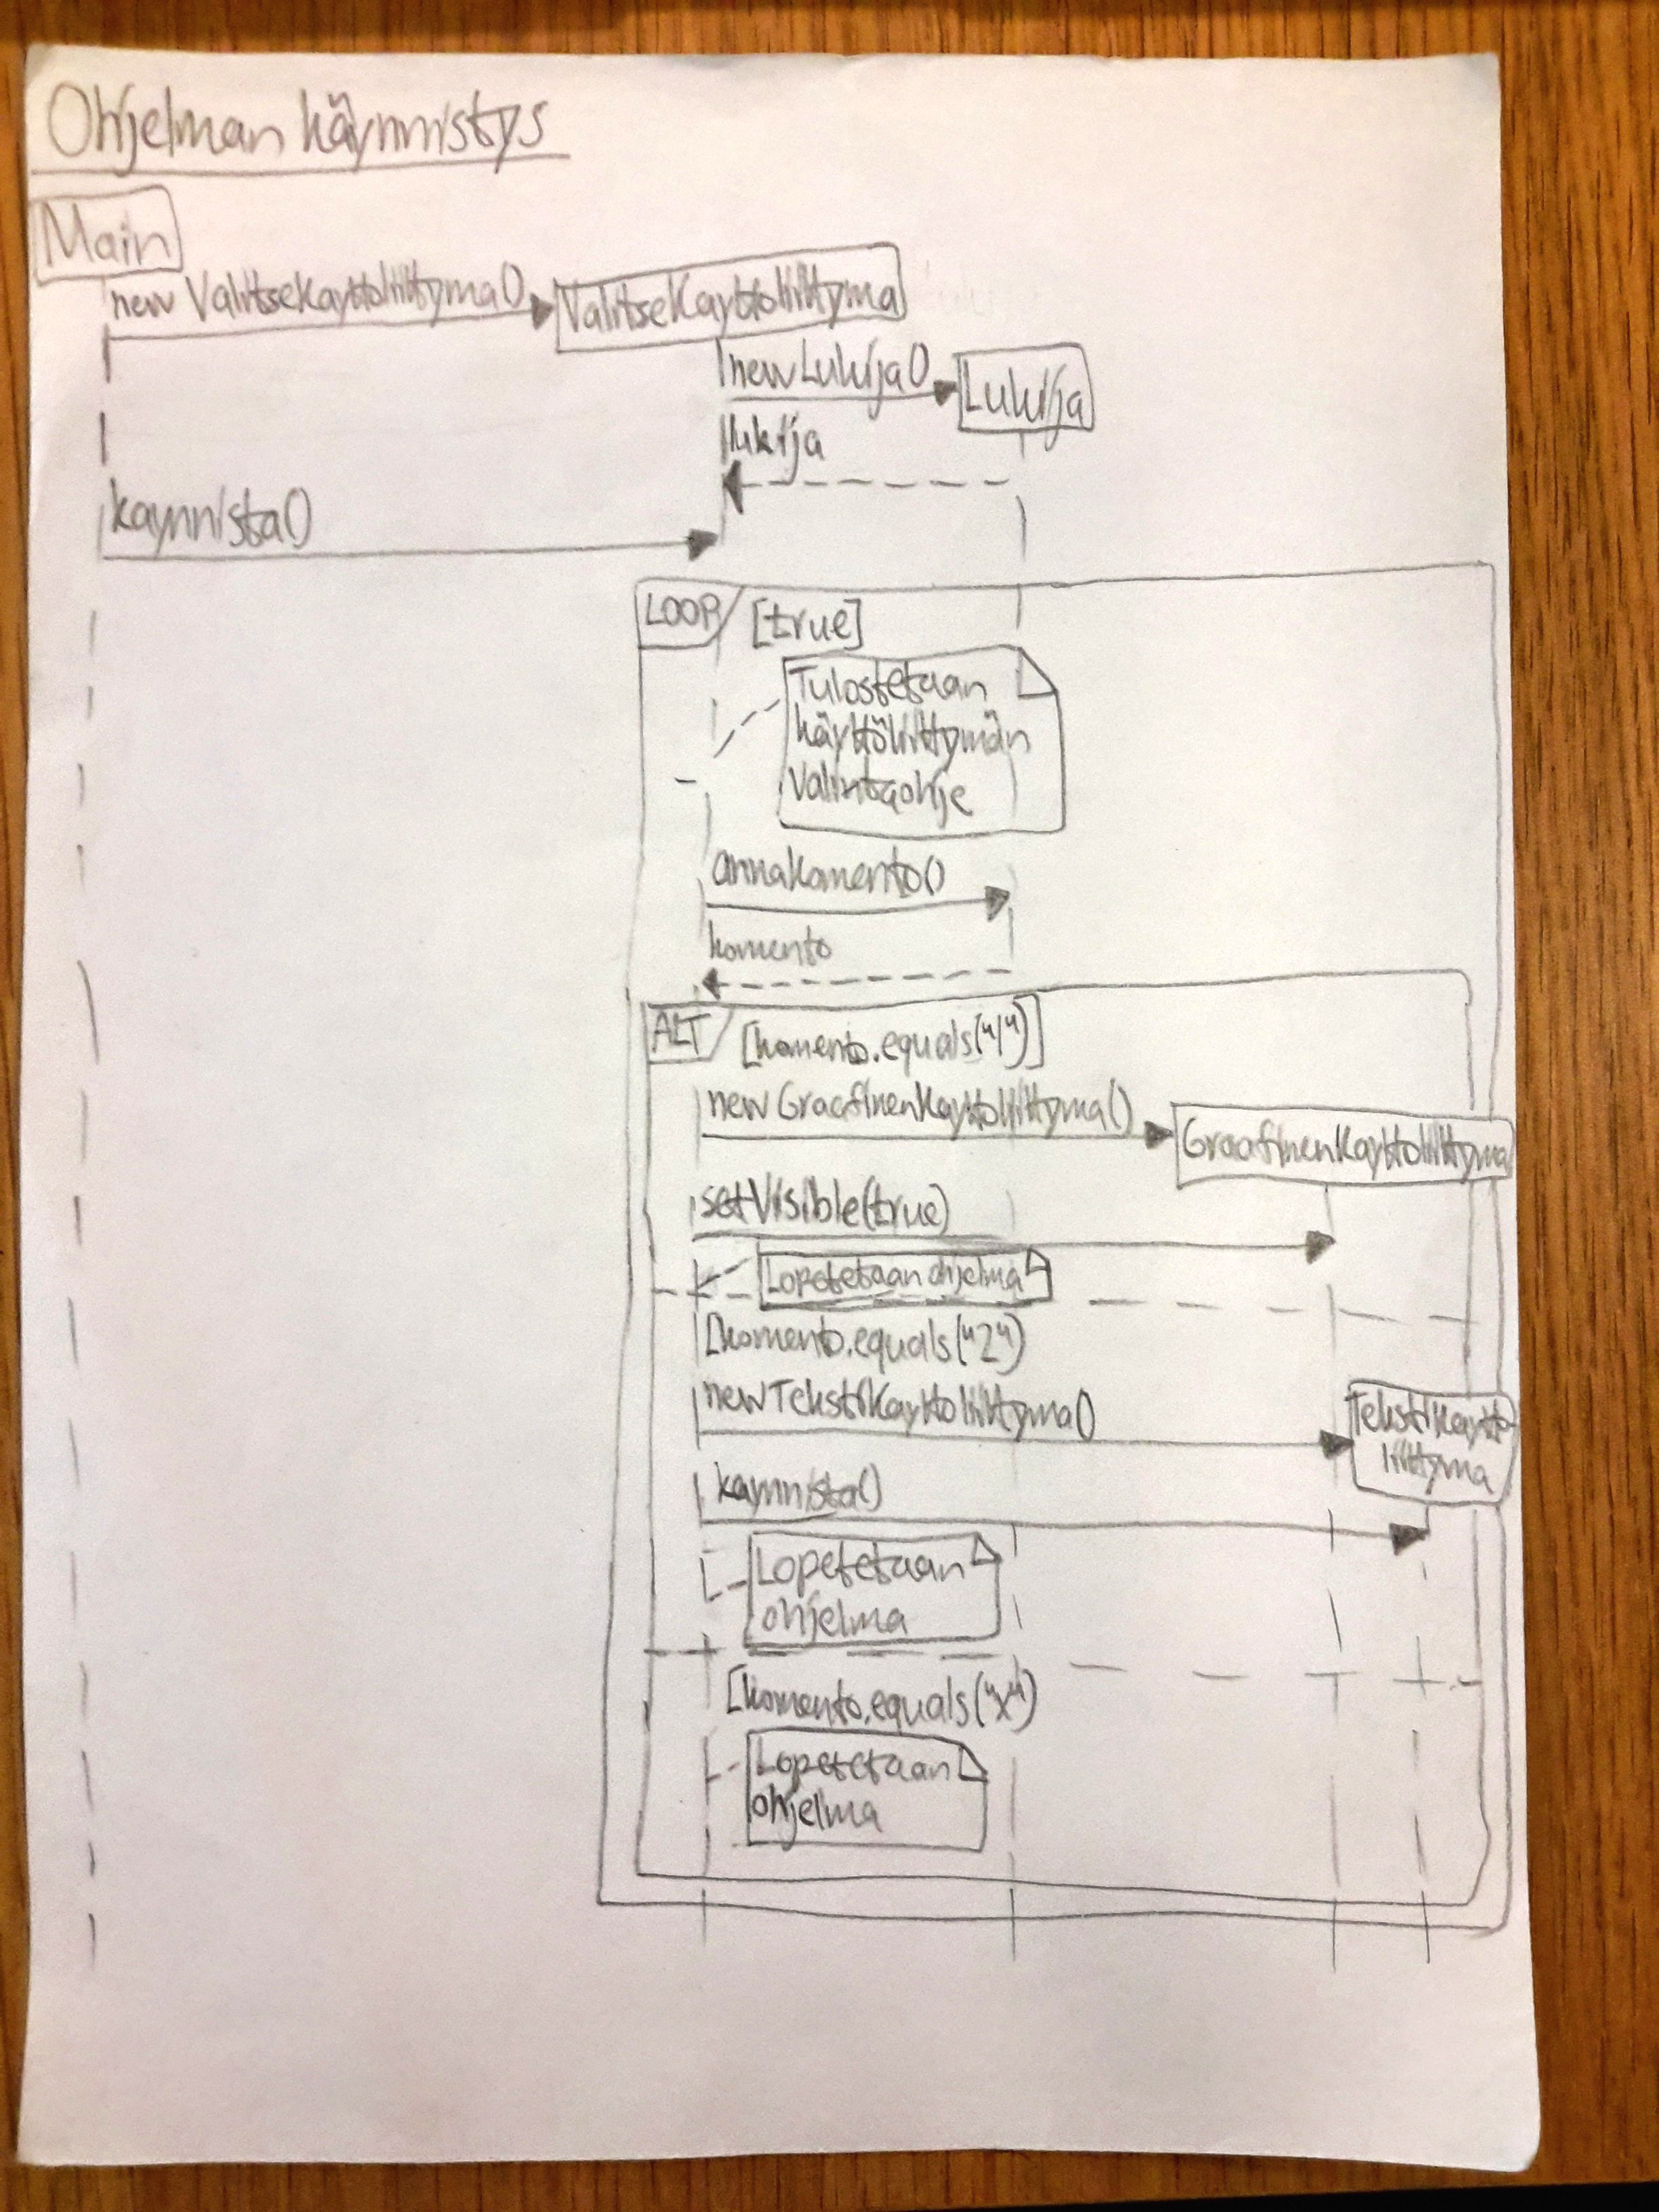 Ohjelman käynnistys
Main
new ValitseKayttoliittyma()
ValitseKayttoliittyma
new Lukija()
Lukija
lukija
kaynnista()
LOOP [true]
Tulostetaan
käyttöliittymän
valintaohje
annaKomento()
komento
ALT [komento.equals("1")]
new GraafinenKayttoliittyma()
GraafinenKayttoliittyma
setVisible(true)
Lopetetaan ohjelma
[komento.equals("2")
new TekstiKayttoliittyma()
TekstiKaytto-
liittyma
kaynnista()
Lopetetaan
ohjelma
[komento.equals("x")
Lopetetaan
ohjelma